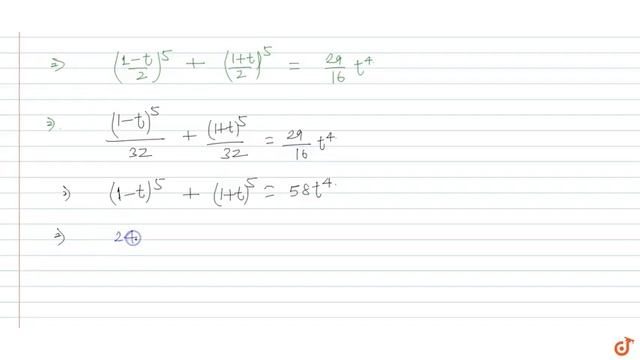 ⇒ ((1-t)/2)^5 + ((1+t)/2)^5 = 29/16 t^4
⇒ (1-t)^5/32 + (1+t)^5/32 = 29/16 t^4
⇒ (1-t)^5 + (1+t)^5 = 58t^4
⇒ 2